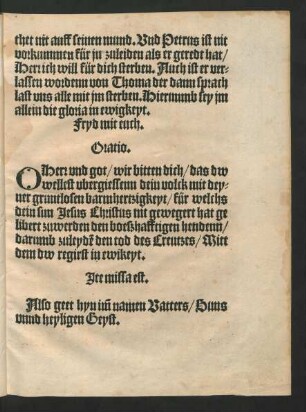 thet nit auff seinen mund. Vnd Petrus ist nie
vorkummen für jn zuleiden als er geredt hat/
Herr ich will für dich sterben. Auch ist er ver-
lassen wordenn von Thoma der dann sprach
last vns alle mit jm sterben. Hierumb sey jm
allein die gloria in ewigkeyt.
Fryd mit euch.
Oratio.
O Herr vnd got/ wir bitten dich/ das dw
wellest vbergiessenn dein volck mit dey-
ner grunlosen barmherzigkeyt/ für welchs
dein sun Jesus Christus nit gewegert hat ge
libert zuwerden den boeszhafftigen hendenn/
darumb zuleydẽ den tod des Creutzes/ Mitt
dem dw regirst in ewikeyt.
Ite missa est.
Also geet hyn im̃ namen Vatters/ Suns
vnnd heyligen Geyst.